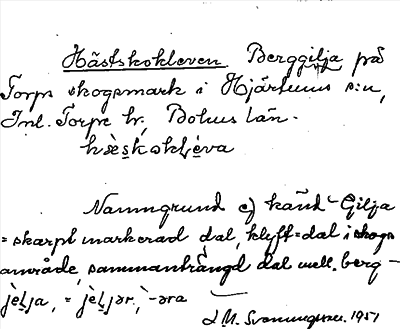 Hästskokleven Berggilja på
Torps skogsmark i Hjärtums s:n,
Inl. Torpe hr, Bohus län.
hæ̀skokl̥è̱va
Namngrund ej känd - Gilja
= skarpt markerad dal, klyft=dal i skogs
område, sammanträngd dal mell. berg -
jèḻja, = jèḻjər, -əra
J.M. Svenungsson. 1951